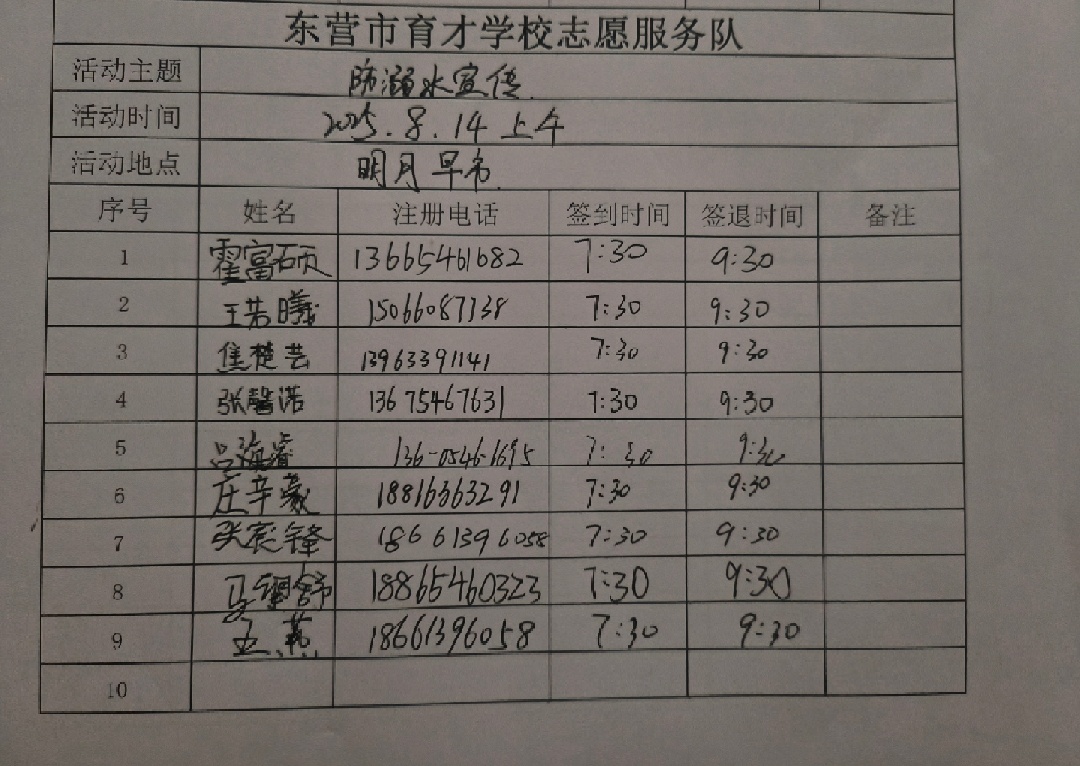 东营市育才学校志愿服务队
活动主题 防溺水宣传
活动时间 2025.8.14 上午
活动地点 明月早市
序号 姓名 注册电话 签到时间 签退时间 备注
1 霍富硕 13665461682 7:30 9:30
2 王若曦 15066087138 7:30 9:30
3 焦楚芸 13963391141 7:30 9:30
4 张馨诺 13675467631 7:30 9:30
5 吕海睿 136-0546-1695 7:30 9:30
6 庄辛蒙 18816363291 7:30 9:30
7 张宸锋 18661396058 7:30 9:30
8 马 舒 18865460323 7:30 9:30
9 王燕 18661396058 7:30 9:30
10